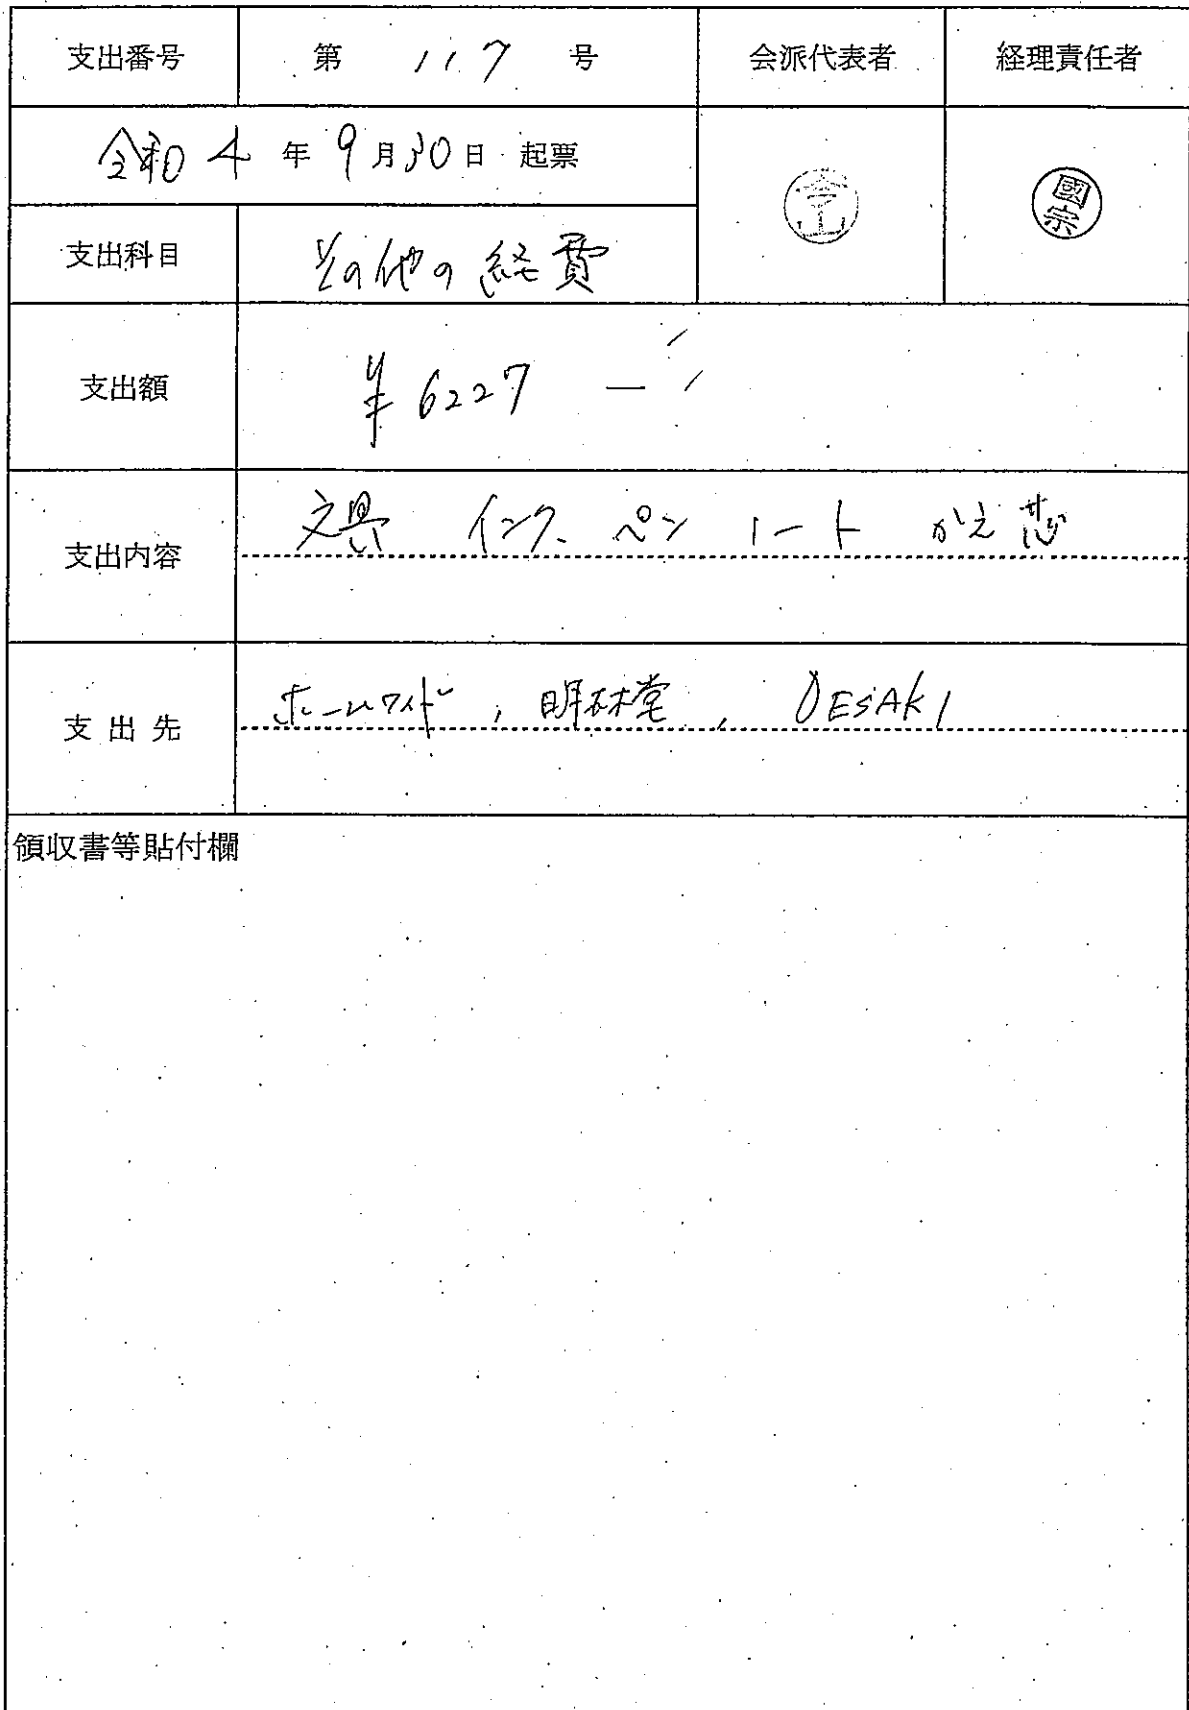 支出番号 第 117 号 会派代表者 経理責任者
令和 4 年 9 月 30 日 起票
國宗
支出科目 その他の経費
支出額 ¥6227 —
支出内容 文具 インク ペン ノート かえ芯
支出先 ホームワイド , 明林堂 , DESAKI
領収書等貼付欄